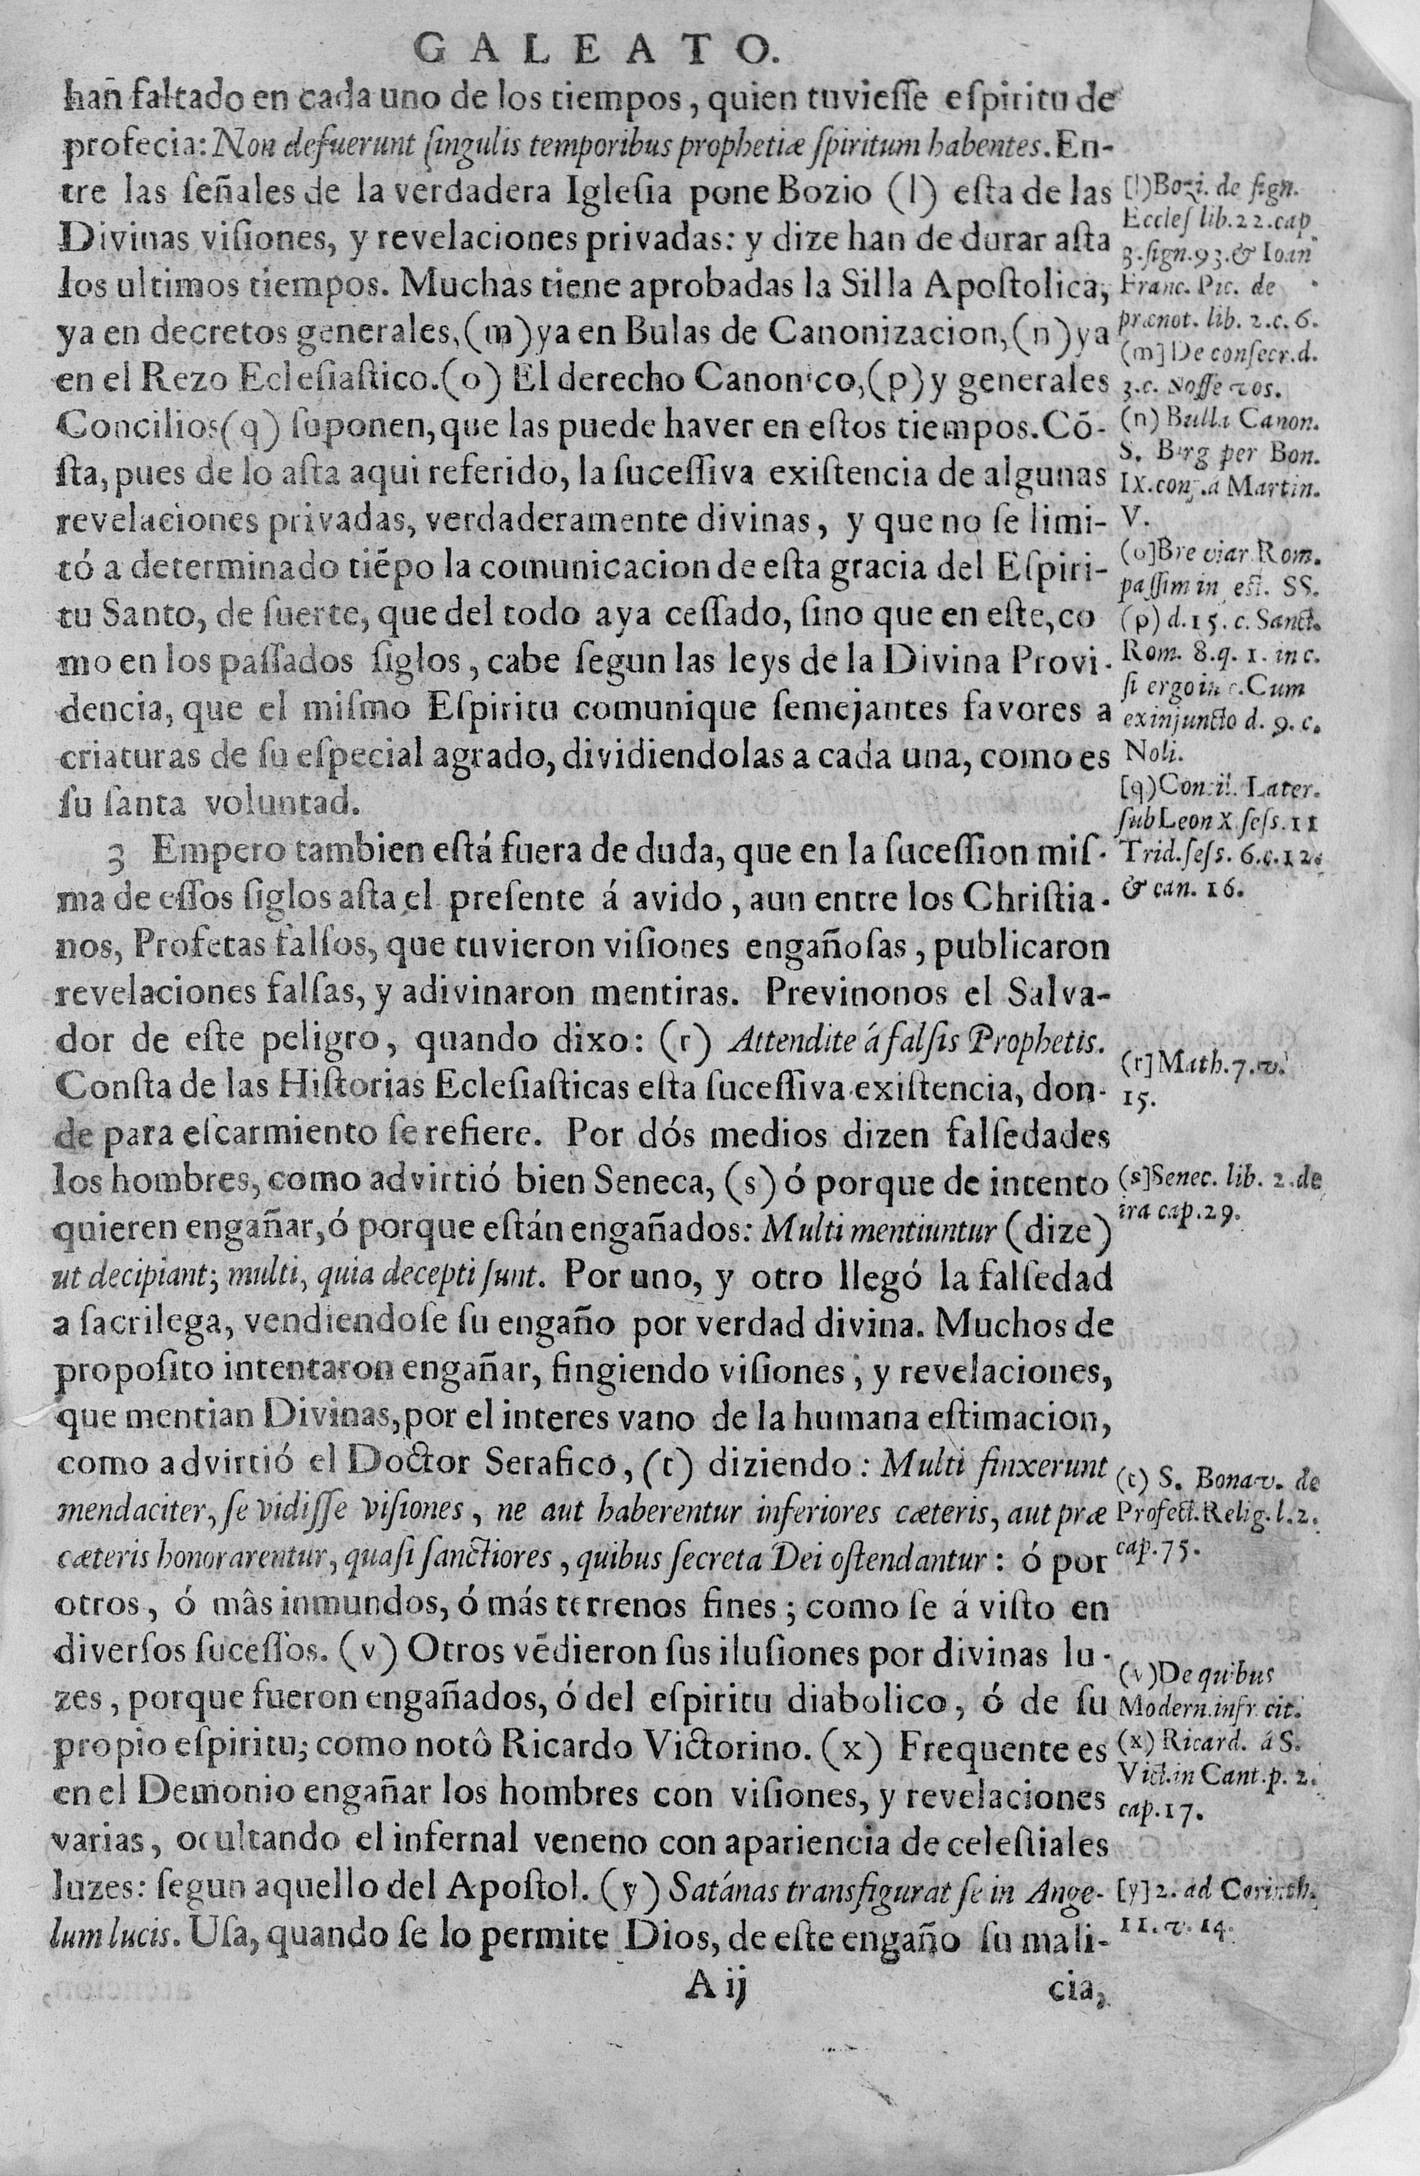 GALEATO.
han faltado en cada uno de los tiempos, quien tuviesse espiritu de
profecia: Non defuerunt singulis temporibus prophetiæ spiritum habentes. En-
tre las señales de la verdadera Iglesia pone Bozio (l) esta de las
Divinas visiones, y revelaciones privadas: y dize han de durar asta
los ultimos tiempos. Muchas tiene aprobadas la Silla Apostolica,
ya en decretos generales, (m) ya en Bulas de Canonizacion, (n) ya
en el Rezo Eclesiastico. (o) El derecho Canonico, (p) y generales
Concilios (q) suponen, que las puede haver en estos tiempos. Cõ-
sta, pues de lo asta aqui referido, la sucessiva existencia de algunas
revelaciones privadas, verdaderamente divinas, y que no se limi-
tó a determinado tiẽpo la comunicacion de esta gracia del Espiri-
tu Santo, de suerte, que del todo aya cessado, sino que en este, co
mo en los passados siglos, cabe segun las leys de la Divina Provi-
dencia, que el mismo Espiritu comunique semejantes favores a
criaturas de su especial agrado, dividiendolas a cada una, como es
su santa voluntad.
3 Empero tambien está fuera de duda, que en la sucession mis-
ma de essos siglos asta el presente á avido, aun entre los Christia-
nos, Profetas falsos, que tuvieron visiones engañosas, publicaron
revelaciones falsas, y adivinaron mentiras. Previnonos el Salva-
dor de este peligro, quando dixo: (r) Attendite á falsis Prophetis.
Consta de las Historias Eclesiasticas esta sucessiva existencia, don-
de para escarmiento se refiere. Por dós medios dizen falsedades
los hombres, como advirtió bien Seneca, (s) ó porque de intento
quieren engañar, ó porque están engañados: Multi mentiuntur (dize)
ut decipiant; multi, quia decepti sunt. Por uno, y otro llegó la falsedad
a sacrilega, vendiendose su engaño por verdad divina. Muchos de
proposito intentaron engañar, fingiendo visiones, y revelaciones,
que mentian Divinas, por el interes vano de la humana estimacion,
como advirtió el Doctor Serafico, (t) diziendo: Multi finxerunt
mendaciter, se vidisse visiones, ne aut haberentur inferiores cæteris, aut præ
cæteris honorarentur, quasi sanctiores, quibus secreta Dei ostendantur: ó por
otros, ó mâs inmundos, ó más terrenos fines; como se á visto en
diversos sucessos. (v) Otros vẽdieron sus ilusiones por divinas lu-
zes, porque fueron engañados, ó del espiritu diabolico, ó de su
propio espiritu; como notô Ricardo Victorino. (x) Frequente es
en el Demonio engañar los hombres con visiones, y revelaciones
varias, ocultando el infernal veneno con apariencia de celestiales
luzes: segun aquello del Apostol. (y) Satánas transfigurat se in Ange-
lum lucis. Usa, quando se lo permite Dios, de este engaño su mali-
A ij
cia,
[l) Bozi. de sign.
Eccles lib. 22. cap
3. sign. 93. & Ioan
Franc. Pic. de
prænot. lib. 2. c. 6.
(m] De consecr. d.
3. c. Nosse vos.
(n) Bulla Canon.
S. Birg per Bon.
IX. conf. á Martin.
V.
(o] Breviar Rom.
passim in est. SS.
(p) d. 15. c. Sanct.
Rom. 8. q. 1. in c.
si ergo in c. Cum
ex injuncto d. 9. c.
Noli.
[q) Concil. Later.
sub Leon X sess. 11
Trid. sess. 6. c. 12.
& can. 16.
(r] Math. 7. v.
15.
(s] Senec. lib. 2. de
ira cap. 29.
(t) S. Bonav. de
Profect. Relig. l. 2.
cap. 75.
(v) De quibus
Modern. infr. cit.
(x) Ricard. á S.
Vict. in Cant. p. 2.
cap. 17.
[y] 2. ad Corinth.
11. v. 14.